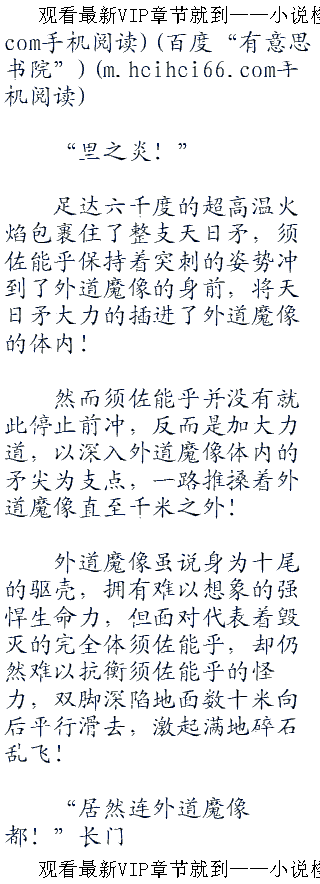 观看最新VIP章节就到——小说检
com手机阅读)(百度“有意思
书院”)(m.hcihci66.com手
机阅读)
“里之炎！”
足达六千度的超高温火
焰包裹住了整支天日矛，须
佐能乎保持着突刺的姿势冲
到了外道魔像的身前，将天
日矛大力的插进了外道魔像
的体内！
然而须佐能乎并没有就
此停止前冲，反而是加大力
道，以深入外道魔像体内的
矛尖为支点，一路推搡着外
道魔像直至千米之外！
外道魔像虽说身为十尾
的驱壳，拥有难以想象的强
悍生命力，但面对代表着毁
灭的完全体须佐能乎，却仍
然难以抗衡须佐能乎的怪
力，双脚深陷地面数十米向
后平行滑去，激起满地碎石
乱飞！
“居然连外道魔像
都！”长门
观看最新VIP章节就到——小说检